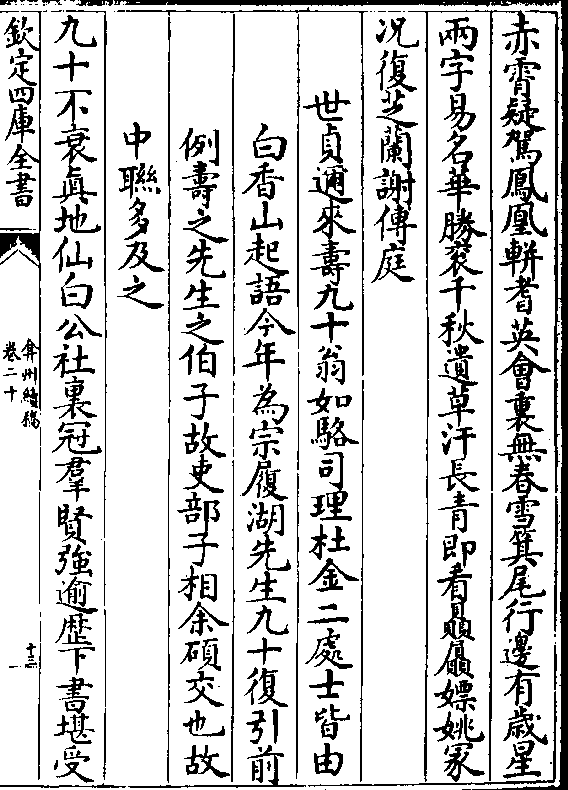 赤霄疑駕鳳凰軿耆英會裏無春雪箕尾行邊有歳星
兩字易名華勝衮千秋遺草汗長青即看贔屭嫖姚冢
况復芝蘭謝傅庭
世貞邇來壽九十翁如駱司理杜金二處士皆由
白香山起語今年為宗履湖先生九十復引前
例壽之先生之伯子故吏部子相余碩交也故
中聯多及之
九十不衰眞地仙白公社裏冠羣賢強逾歴下書堪受
欽定四庫全書
弇州續稿
卷二十
十三